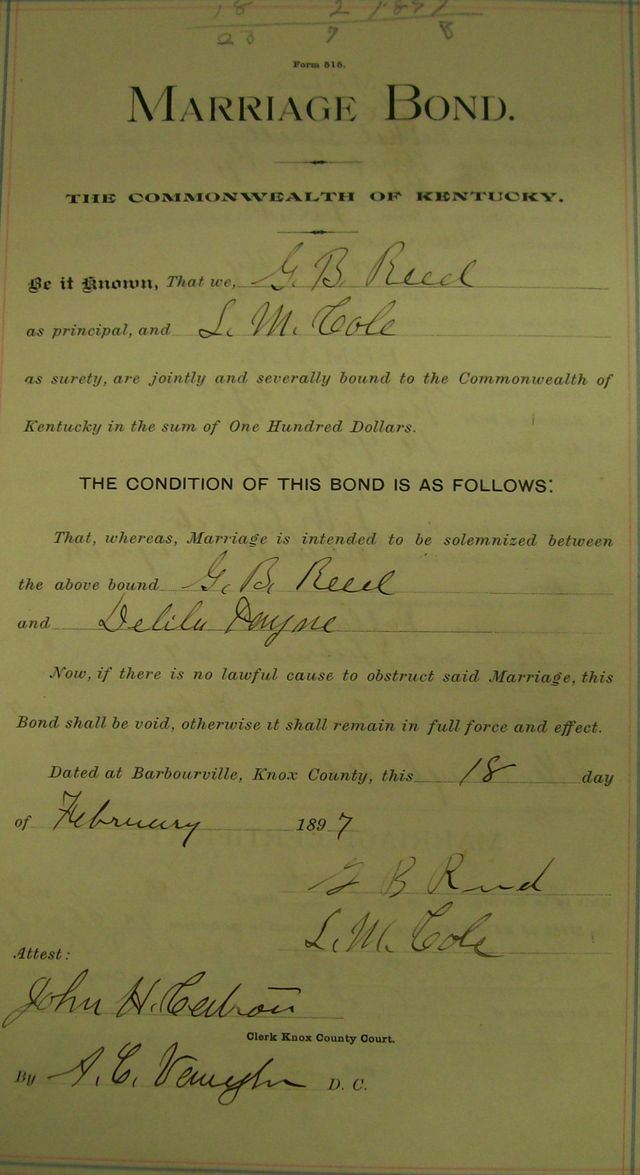 18 2 1897
23 7 8
Form 515.
MARRIAGE BOND.
THE COMMONWEALTH OF KENTUCKY.
Be it Known, That we, G. B. Reed
as principal, and L. M. Cole
as surety, are jointly and severally bound to the Commonwealth of
Kentucky in the sum of One Hundred Dollars.
THE CONDITION OF THIS BOND IS AS FOLLOWS:
That, whereas, Marriage is intended to be solemnized between
the above bound G. B. Reed
and Delila Payne
Now, if there is no lawful cause to obstruct said Marriage, this
Bond shall be void, otherwise it shall remain in full force and effect.
Dated at Barbourville, Knox County, this 18 day
of February 1897
G B Reed
L. M. Cole
Attest:
John H. Catron
Clerk Knox County Court.
By A. C. Vaughn D. C.